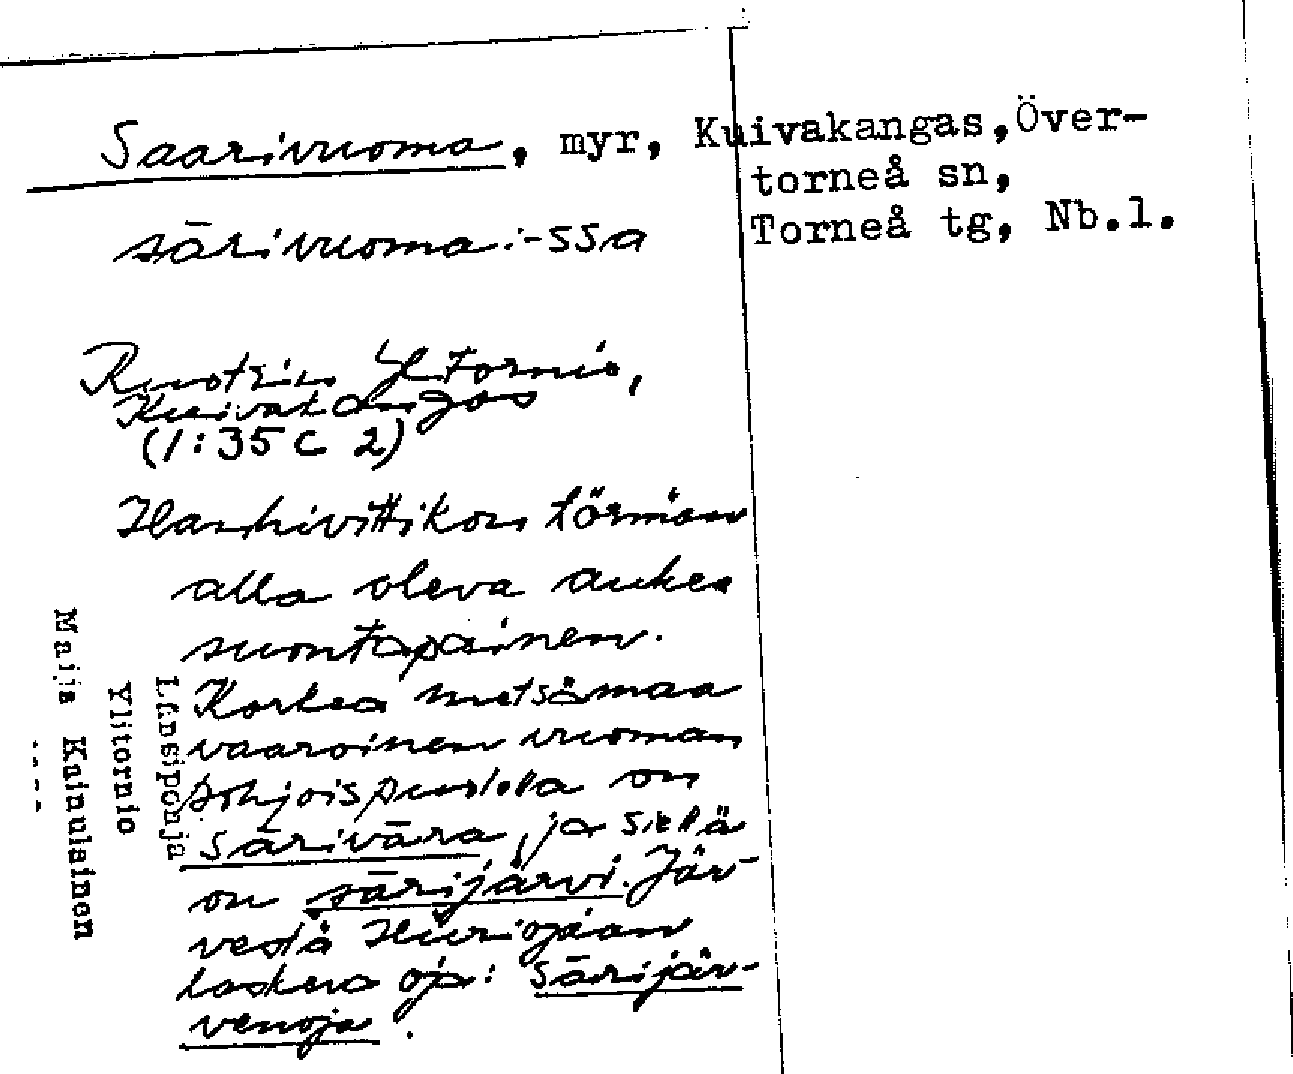 Saarivuoma, myr, Kuivakangas, Över-
torneå sn,
Torneå tg, Nb.l.
sārivuoma: -ssa
Ruotsin Ylitornio,
Kuivakangas
(1:35 C 2)
Hanhivittikon törmän
alla oleva aukea
suontapainen.
Korkea metsämaa
vaaroinen vuoman
pohjoispuolella on
sārivāra, ja siellä
on sārijärvi. Jär-
vestä Huriojaan
laskeva oja: sārijär-
venoja.
Länsipohja
Ylitornio
Maija Kainulainen